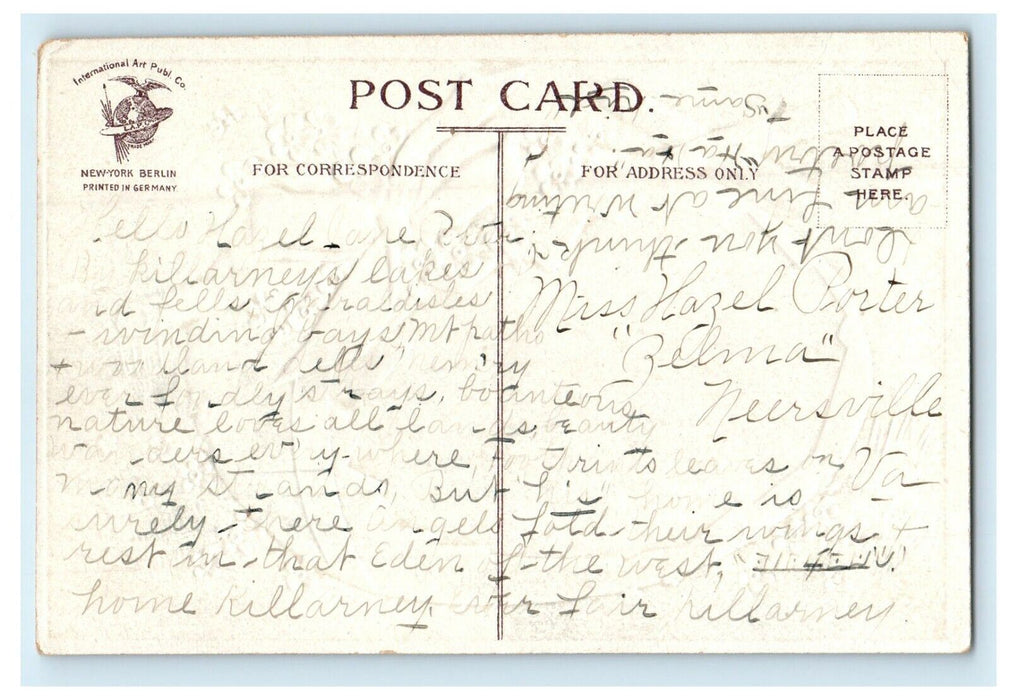 International Art Publ. Co.
NEW-YORK BERLIN
PRINTED IN GERMANY
POST CARD.
FOR CORRESPONDENCE
FOR ADDRESS ONLY
PLACE
A POSTAGE
STAMP
HERE.
Hello Hazel Jane Porter
By Killarney's lakes
and fells, Emeraldisles
- winding bays Mt paths
+ woodland dells memory
ever fondly strays, bounteous
nature loves all lands, beauty
wanders every where foot prints leaves on
many strands, But his home is
surely there Angels fold their wings +
rest in that Eden of the west,
home Killarney. Ever fair Killarney.
Miss Hazel Porter
"Zelma"
Neersville
Va
Dont you think I
am fine at writing
Ha Ha
Same